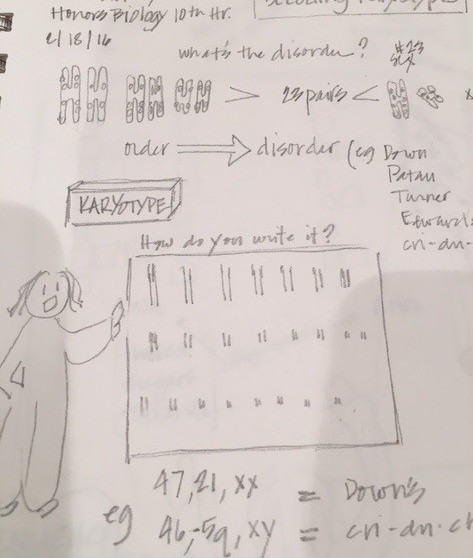 Honors Biology 10th Hr.
2/18/16
what's the disorder?
#23
sex
> 23 pairs <
order ⟹ disorder (eg Down
Patau
Turner
Edward's
cri-du-
KARYOTYPE
How do you write it?
47,21,xx = Down's
eg
46,-5q,xy = cri-du-ch